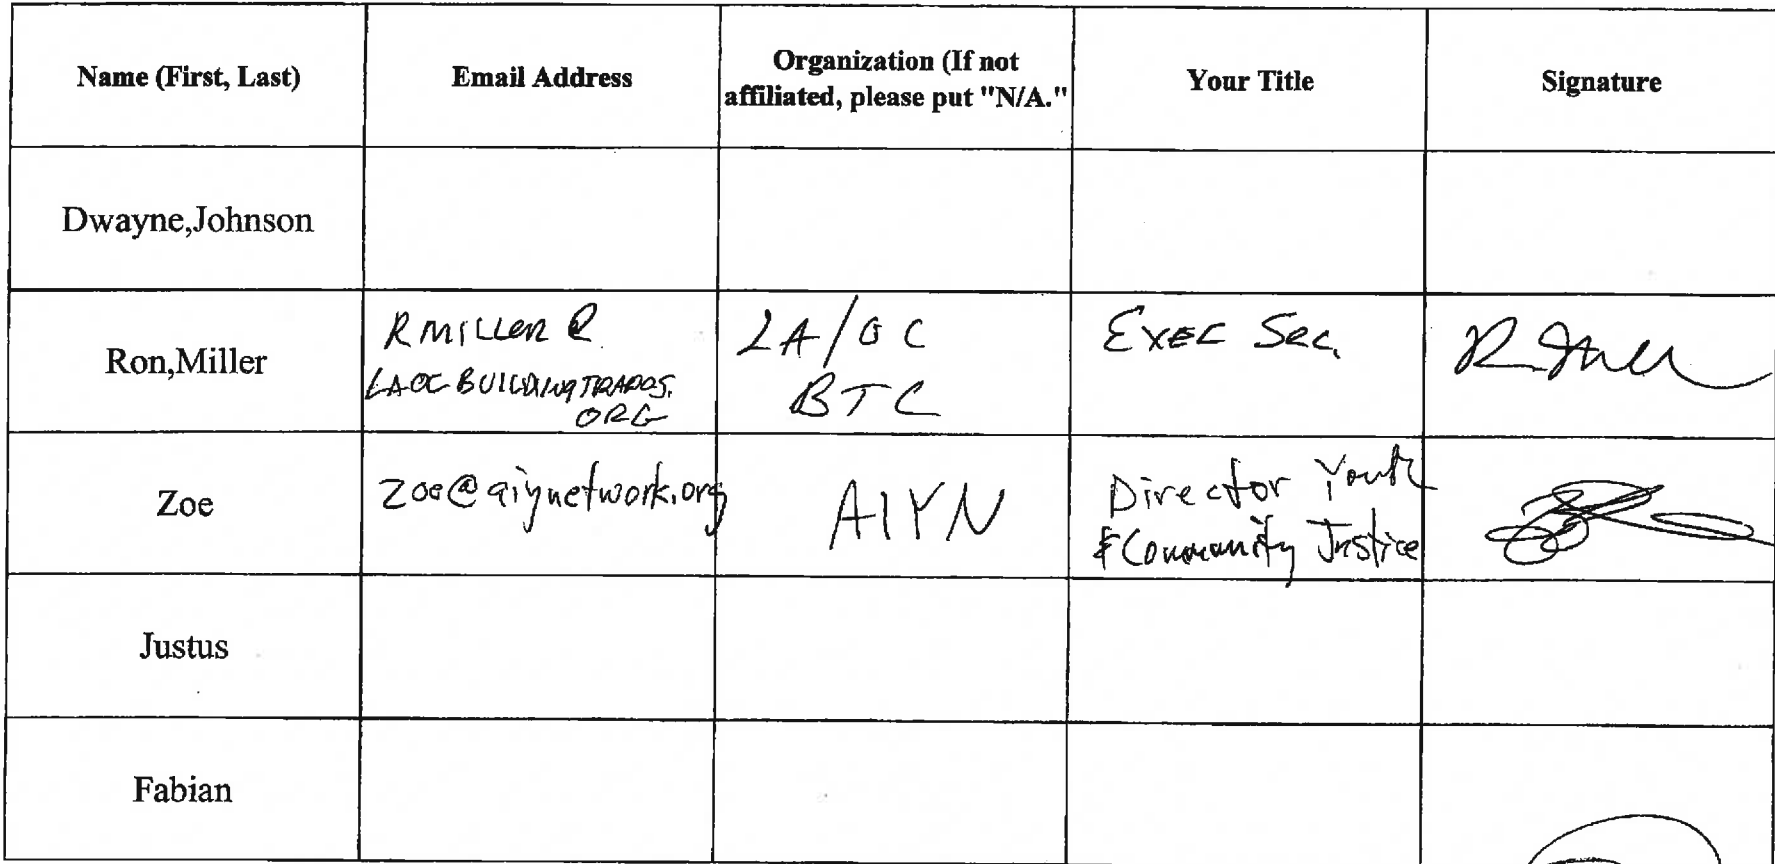 Name (First, Last)
Email Address
Organization (If not
affiliated, please put "N/A."
Your Title
Signature
Dwayne,Johnson
Ron,Miller
RMILLER@
LAOCBUILDINGTRADES.
ORG
LA/OC
BTC
EXEC SEC.
Zoe
zoe@aiynetwork.org
AIYN
Director Youth
& Community Justice
Justus
Fabian